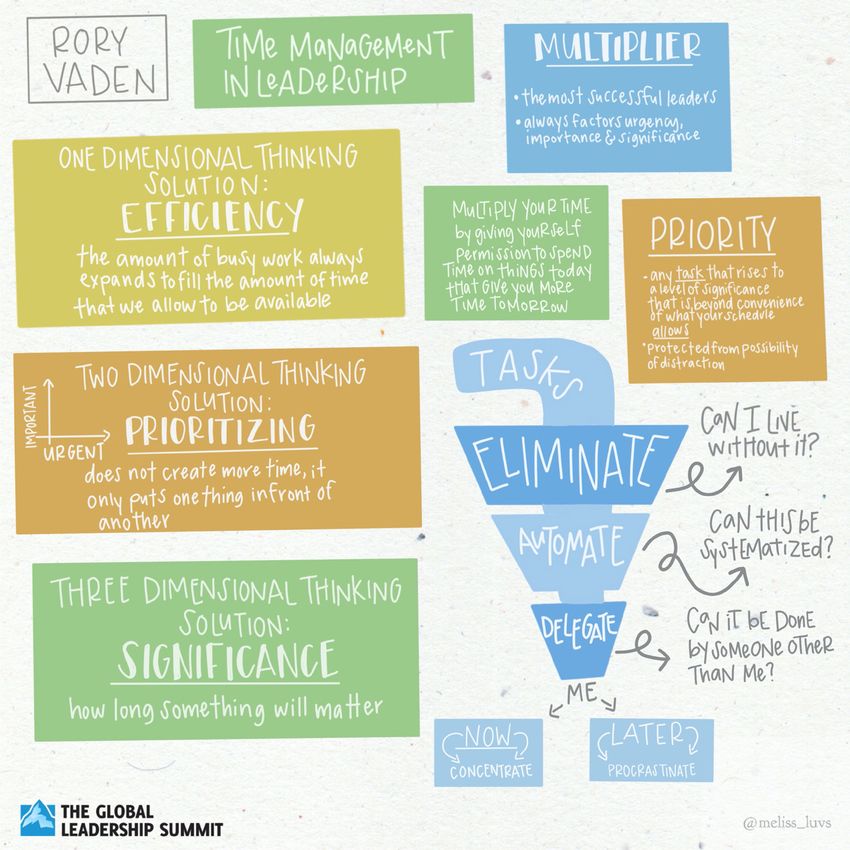 RORY
VADEN
TIME MANAGEMENT
IN LEADERSHIP
MULTIPLIER
• the most successful leaders
• always factors urgency,
importance & significance
ONE DIMENSIONAL THINKING
SOLUTION:
EFFICIENCY
the amount of busy work always
expands to fill the amount of time
that we allow to be available
MULTIPLY YOUR TIME
by giving yourself
permission to spend
time on things today
that give you more
time tomorrow
PRIORITY
- any task that rises to
a level of significance
that is beyond convenience
of what your schedule
allows
*Protected from possibility
of distraction
TWO DIMENSIONAL THINKING
SOLUTION:
PRIORITIZING
IMPORTANT
URGENT
does not create more time, it
only puts one thing infront of
another
THREE DIMENSIONAL THINKING
SOLUTION:
SIGNIFICANCE
how long something will matter
TASKS
ELIMINATE
CAN I LIVE
WITHOUT IT?
AUTOMATE
CAN THIS BE
SYSTEMATIZED?
DELEGATE
CAN IT BE DONE
BY SOMEONE OTHER
THAN ME?
ME
NOW
CONCENTRATE
LATER
PROCRASTINATE
THE GLOBAL
LEADERSHIP SUMMIT
@meliss_luvs